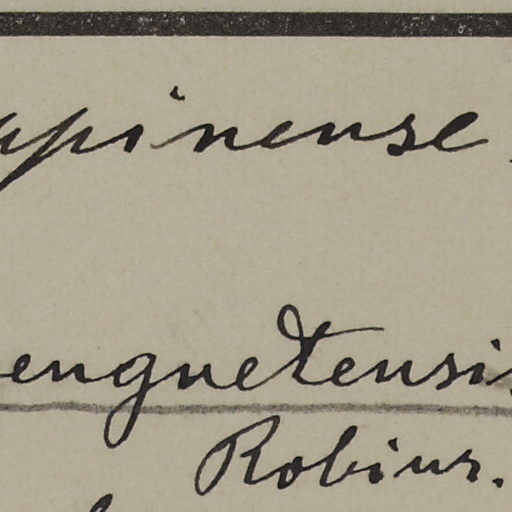 apinense
enguetensis
Robins.